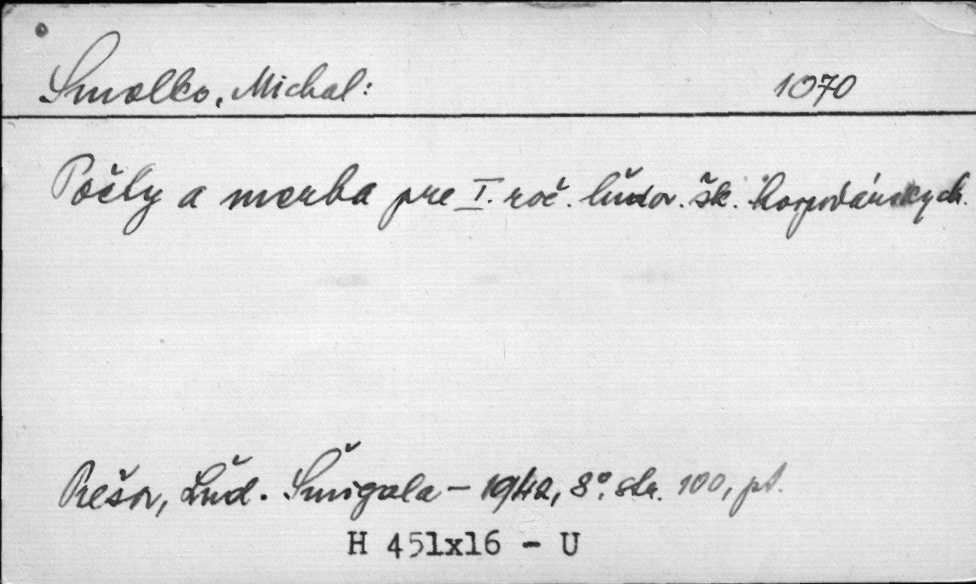 Smolko, Michal: 1070
Počty a merba pre I. roč. ľudov. šk. hospodárskych.
Prešov, Ľud. Šmigala - 1942, 8°. str. 100, pt.
H 451x16 - U